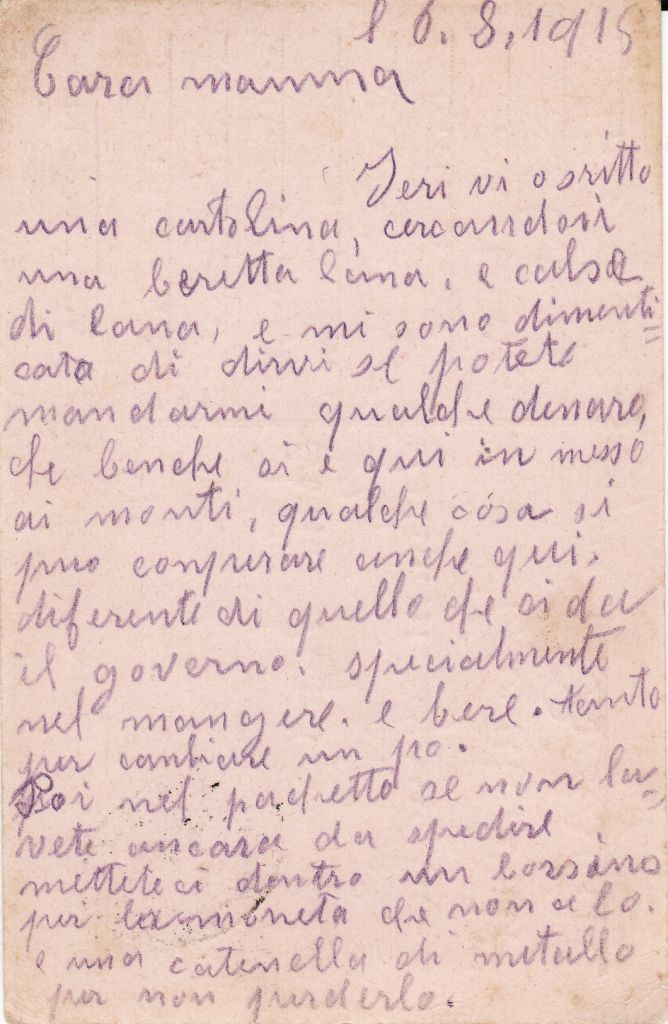 l 6. 8. 1915
Cara mamma
Jeri vi o sritto
una cartolina, cercandovi
una beretta lana. e calse
di lana, e mi sono dimenti=
cata di dirvi se potete
mandarmi qualche denaro,
che benche si e qui in messo
ai monti, qualche cosa si
puo conperare anche qui.
diferente di quello che ci da
il governo. specialmente
nel mangere. e bere. tanto
per canbiare un po.
Poi nel pachetto se non la=
vete ancara da spedire
metteteci dentro un borsino
per la moneta che non ce lo.
e una catenella di metallo
per non perderlo.